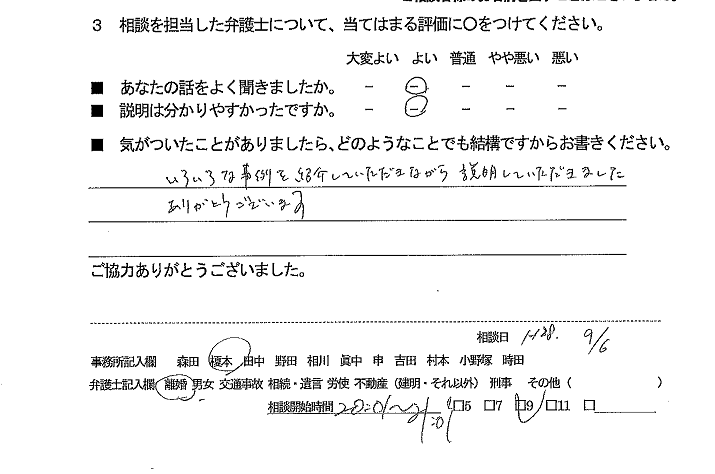 3 相談を担当した弁護士について、当てはまる評価に○をつけてください。
大変よい よい 普通 やや悪い 悪い
■ あなたの話をよく聞きましたか。 － － － － －
■ 説明は分かりやすかったですか。 － － － － －
■ 気がついたことがありましたら、どのようなことでも結構ですからお書きください。
いろいろな事例を紹介していただきながら 説明していただきました
ありがとうございます
ご協力ありがとうございました。
相談日 H28. 9/6
事務所記入欄 森田 榎本 田中 野田 相川 眞中 申 吉田 村本 小野塚 時田
弁護士記入欄 離婚 男女 交通事故 相続・遺言 労使 不動産（建明・それ以外） 刑事 その他（ ）
相談開始時間 20:01～21:01 □5 □7 □9 □11 □